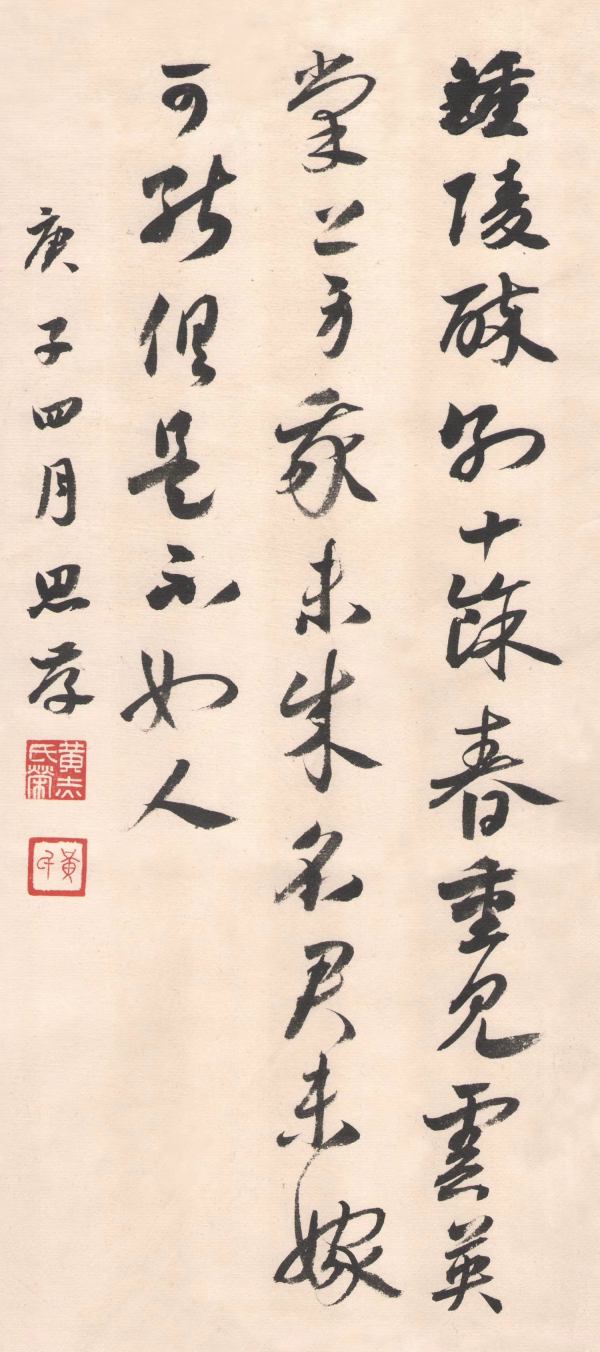 鍾陵醉別十餘春重見雲英
掌上身我未成名君未嫁
可能俱是不如人
庚子四月思存
黃志氏榮
黃